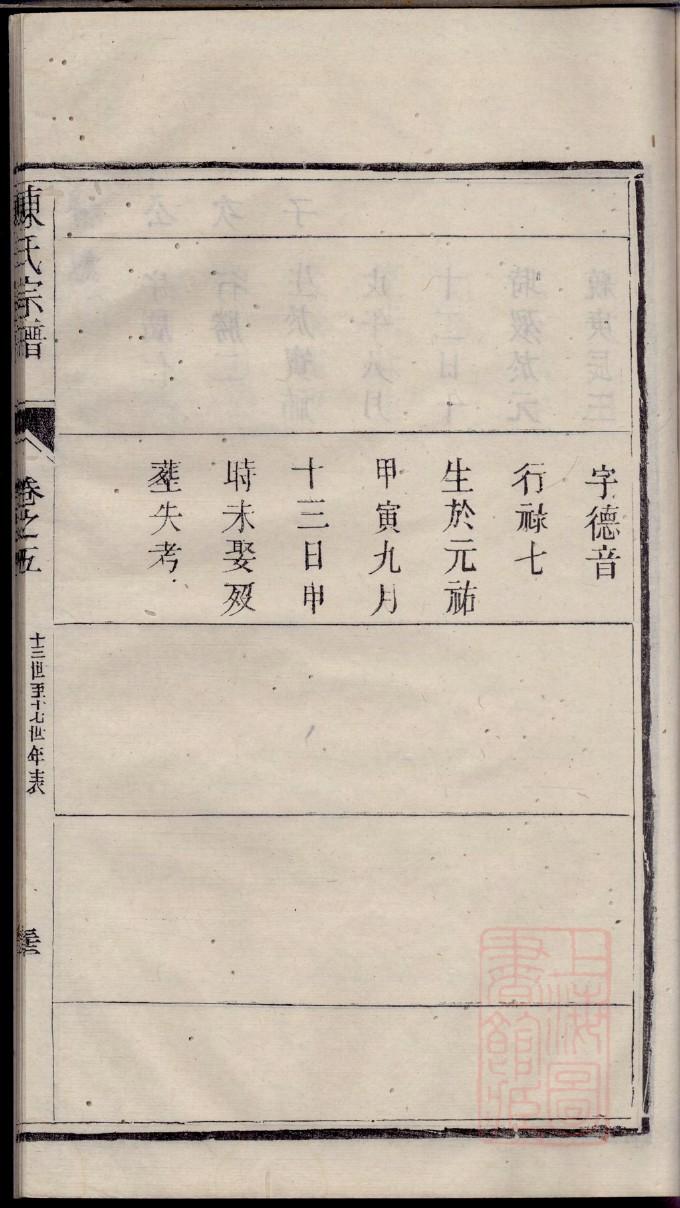 字德音
行祿七
生於元祐
甲寅九月
十三日申
時未娶歿
塟失考
陳氏宗譜
卷之五
十三世至十七世年表
上海圖
書館藏